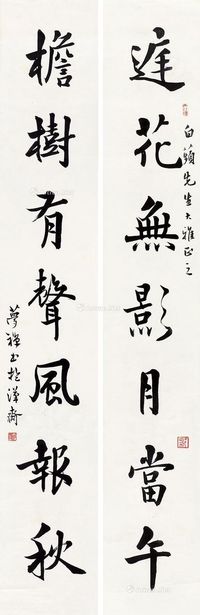 庭花無影月當午
白蘋先生大雅正之
檐樹有聲風報秋
夢禪書於漢齋